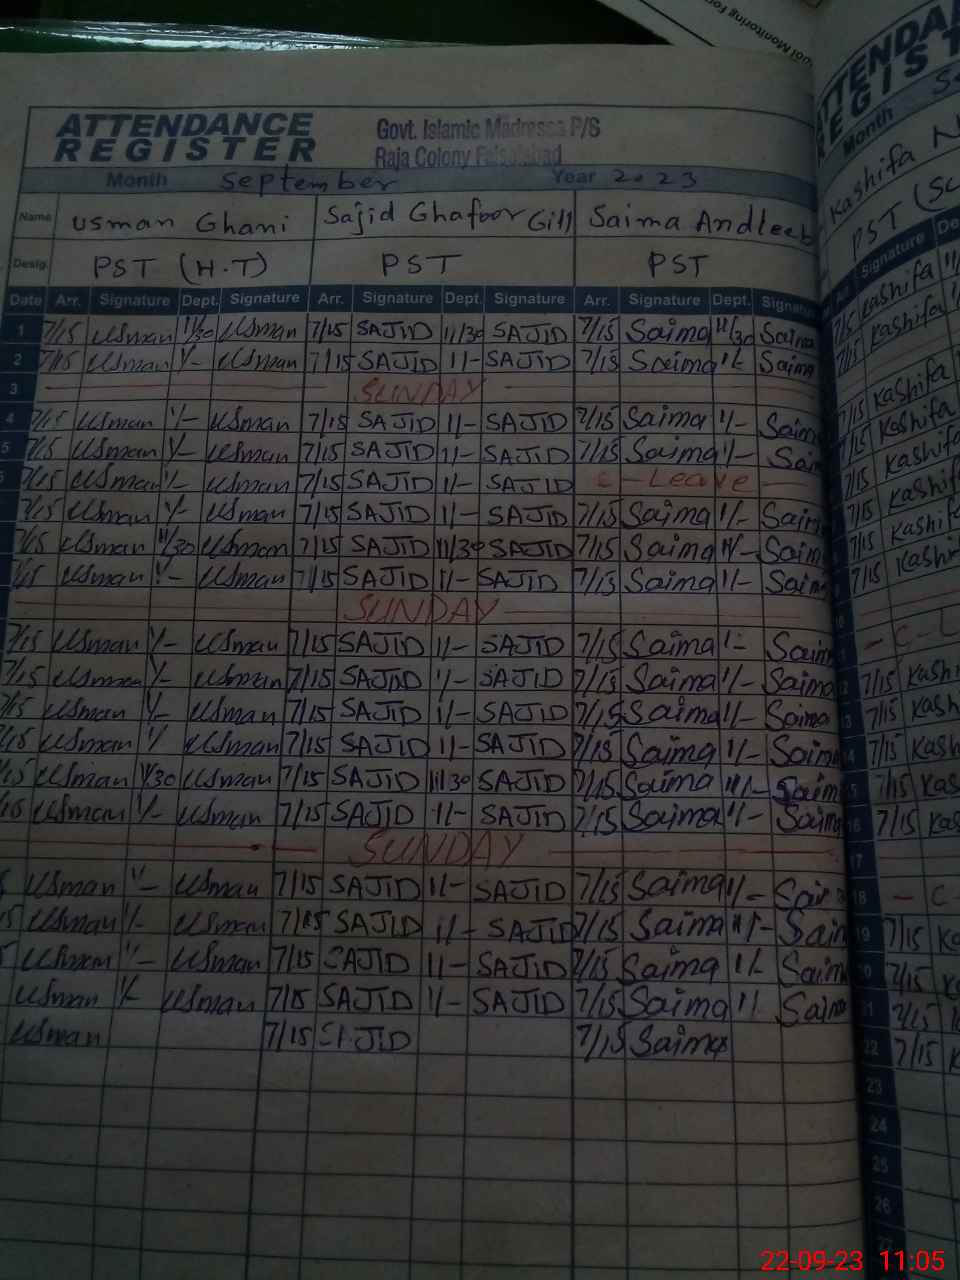 ual Monitoring For
ATTENDANCE
REGISTER
Govt. Islamic Madressa P/S
Raja Colony Faisalabad
Month September Year 2023
Name Usman Ghani Sajid Ghafoor Gill Saima Andleeb
Desig. PST (H.T) PST PST
Date Arr. Signature Dept. Signature Arr. Signature Dept. Signature Arr. Signature Dept. Signatur
1 7/15 Usman 11/30 Usman 7/15 SAJID 11/30 SAJID 7/15 Saima 11/30 Saima
2 7/15 Usman 1/- Usman 7/15 SAJID 1/- SAJID 7/15 Saima 1/- Saima
3 SUNDAY
4 7/15 Usman 1/- Usman 7/15 SAJID 1/- SAJID 7/15 Saima 1/- Saim
5 7/15 Usman 1/- Usman 7/15 SAJID 1/- SAJID 7/15 Saima 1/- Sai
7/15 Usman 1/- Usman 7/15 SAJID 1/- SAJID C-Leave
7/15 Usman 1/- Usman 7/15 SAJID 1/- SAJID 7/15 Saima 1/- Saim
7/15 Usman 11/30 Usman 7/15 SAJID 11/30 SAJID 7/15 Saima 11/- Saim
/15 Usman 1/- Usman 7/15 SAJID 1/- SAJID 7/15 Saima 1/- Saim
SUNDAY
7/15 Usman 1/- Usman 7/15 SAJID 1/- SAJID 7/15 Saima 1/- Saim
7/15 Usman 1/- Usman 7/15 SAJID 1/- SAJID 7/15 Saima 1/- Saima
7/15 Usman 1/- Usman 7/15 SAJID 1/- SAJID 7/15 Saima 1/- Saima
7/15 Usman 1/ Usman 7/15 SAJID 1/- SAJID 7/15 Saima 1/- Saima
/15 Usman 11/30 Usman 7/15 SAJID 11/30 SAJID 7/15 Saima 11/- Saim
/15 Usman 1/- Usman 7/15 SAJID 1/- SAJID 7/15 Saima 1/- Saima
SUNDAY
Usman 1/- Usman 7/15 SAJID 1/- SAJID 7/15 Saima 1/- Sai
15 Usman 1/- Usman 7/15 SAJID 1/- SAJID 7/15 Saima 11/- Saim
Usman 1/- Usman 7/15 SAJID 1/- SAJID 7/15 Saima 1/- Saim
Usman 1/- Usman 7/15 SAJID 1/- SAJID 7/15 Saima 1/ Saima
Usman 7/15 SAJID 7/15 Saima
ATTENDA
REGIST
Month Se
Kashifa N
PST (Sc
Signature De
7/15 Kashifa 11/
7/15 Kashifa
7/15 Kashifa
7/15 Kashifa
7/15 Kashifa
7/15 Kashif
7/15 Kashi
- C-L
7/15 Kashi
13 7/15 Kash
14 7/15 Kash
15 7/15 Kas
16 7/15 Kas
17
18 - C
19 7/15 Ka
20 7/15 Ka
21 7/15
22 7/15 K
23
24
25
26
27
22-09-23 11:05